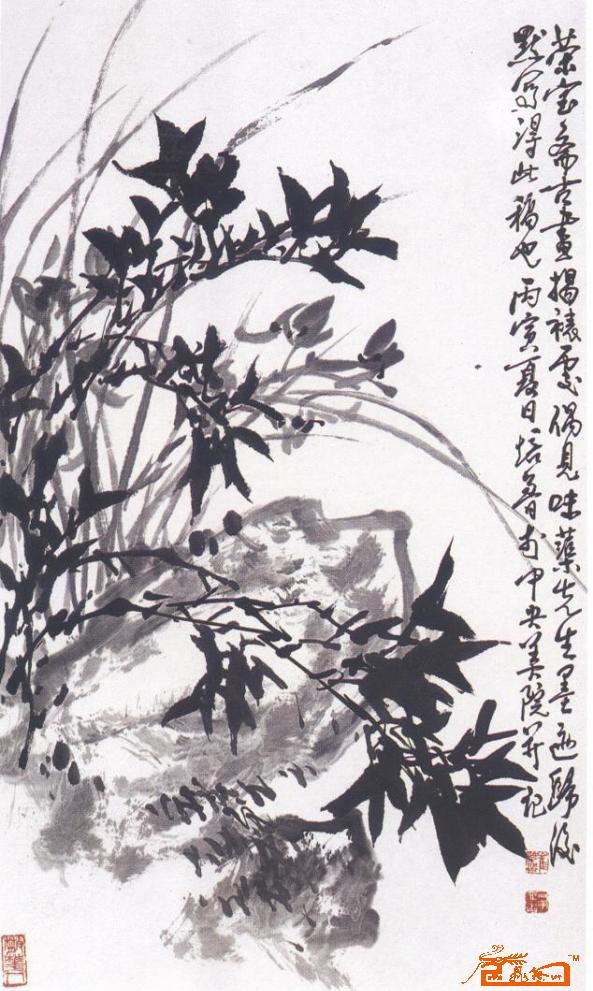 荣宝斋古画揭裱处偶见味蕖先生墨迹归后
默写得此稿也 丙寅夏日 培鲁于中央美院并记